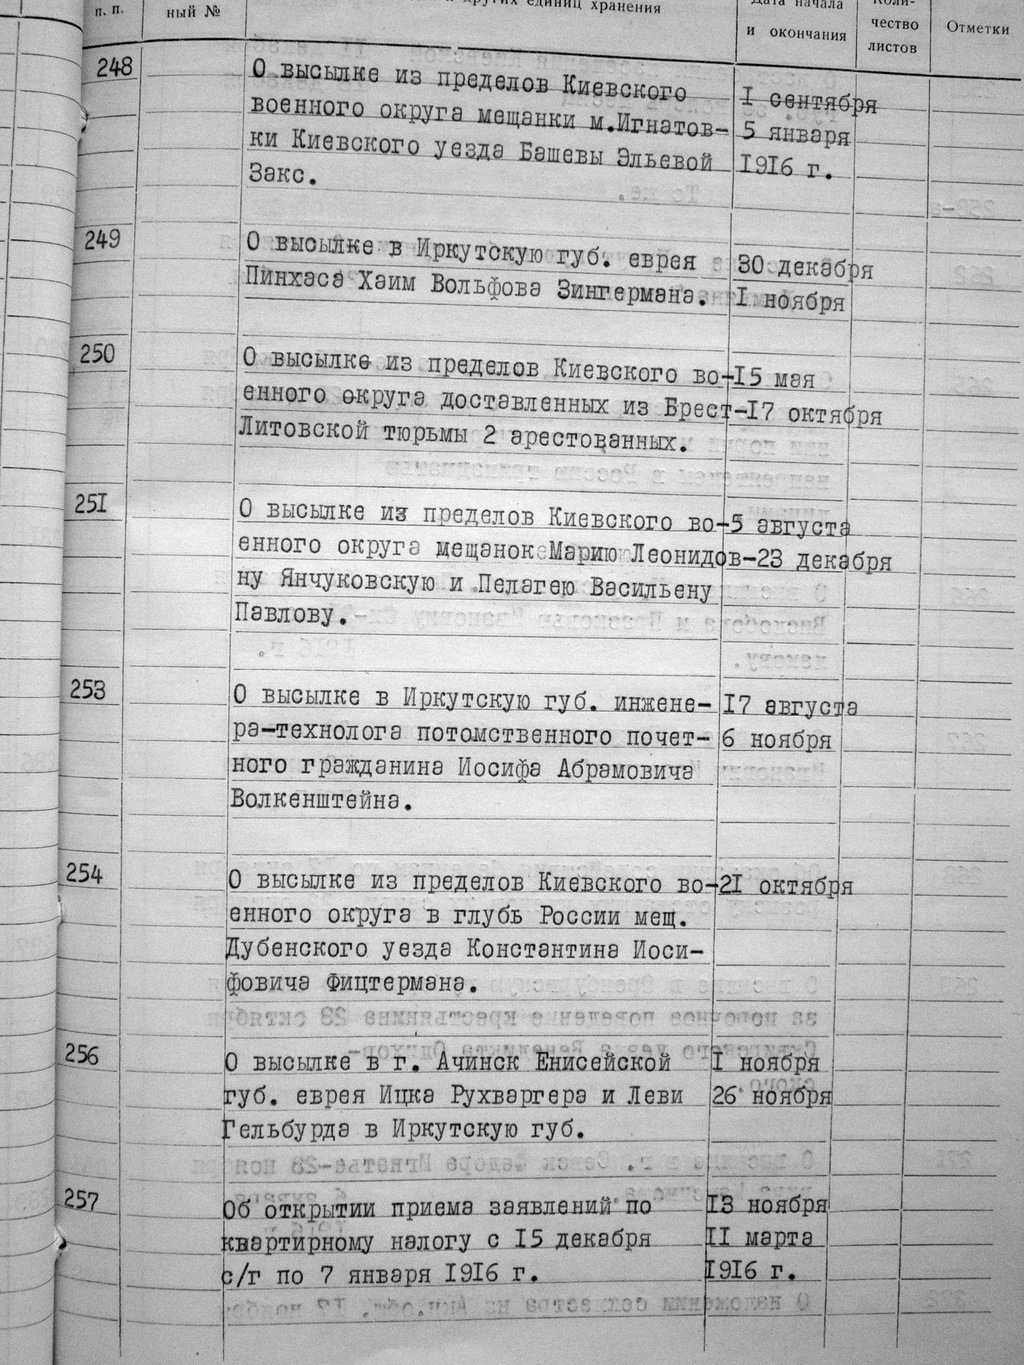 п. п.
ный №
других единиц хранения
Дата начала
и окончания
Коли-
чество
листов
Отметки
248
О высылке из пределов Киевского
военного округа мещанки м.Игнатов-
ки Киевского уезда Башевы Эльевой
Закс.
I сентября
5 января
1916 г.
249
О высылке в Иркутскую губ. еврея
Пинхаса Хаим Вольфова Зингермана.
30 декабря
I ноября
250
О высылке из пределов Киевского во-
енного округа доставленных из Брест-
Литовской тюрьмы 2 арестованных.
15 мая
17 октября
251
О высылке из пределов Киевского во-
енного округа мещанок Марию Леонидов-
ну Янчуковскую и Пелагею Васильену
Павлову.
5 августа
23 декабря
253
О высылке в Иркутскую губ. инжене-
ра-технолога потомственного почет-
ного гражданина Иосифа Абрамовича
Волкенштейна.
17 августа
6 ноября
254
О высылке из пределов Киевского во-
енного округа в глубь России мещ.
Дубенского уезда Константина Иоси-
фовича Фицтермана.
21 октября
256
О высылке в г. Ачинск Енисейской
губ. еврея Ицка Рухваргера и Леви
Гельбурда в Иркутскую губ.
I ноября
26 ноября
257
Об открытии приема заявлений по
квартирному налогу с 15 декабря
с/г по 7 января 1916 г.
13 ноября
II марта
1916 г.